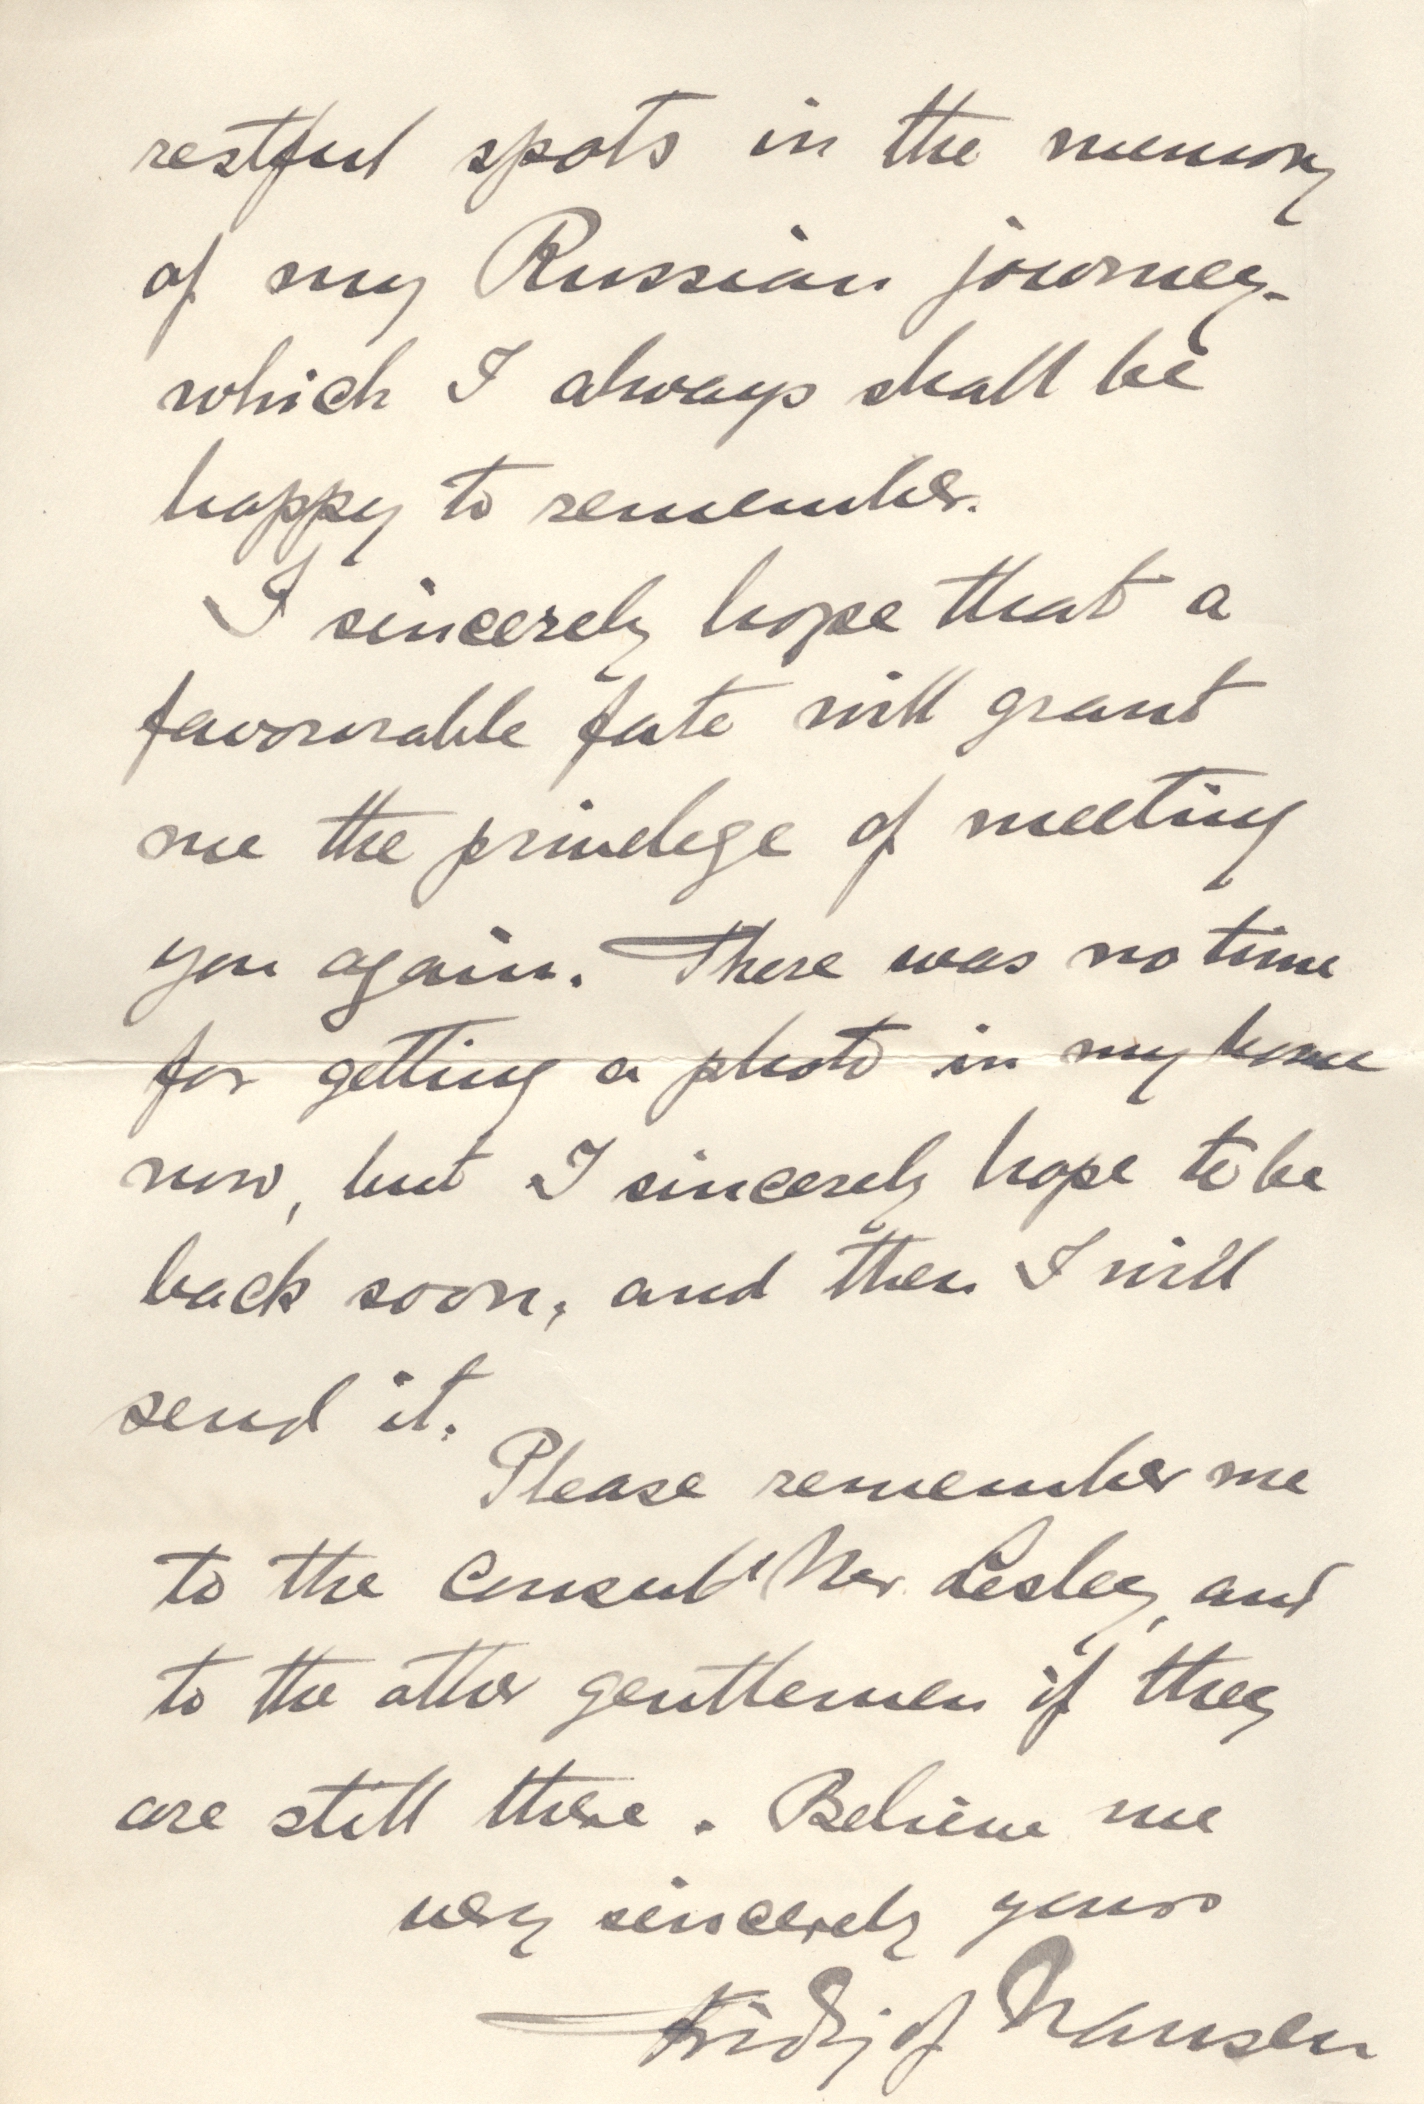 restful spots in the memory
of my Russian journey.
which I always shall be
happy to remember.
I sincerely hope that a
favourable fate will grant
me the privilege of meeting
you again. There was no time
for getting a photo in my home
now, but I sincerely hope to be
back soon, and then I will
send it.
Please remember me
to the consul Mr. Lesley, and
to the other gentlemen if they
are still there. Believe me
very sincerely yours
Fridtjof Nansen